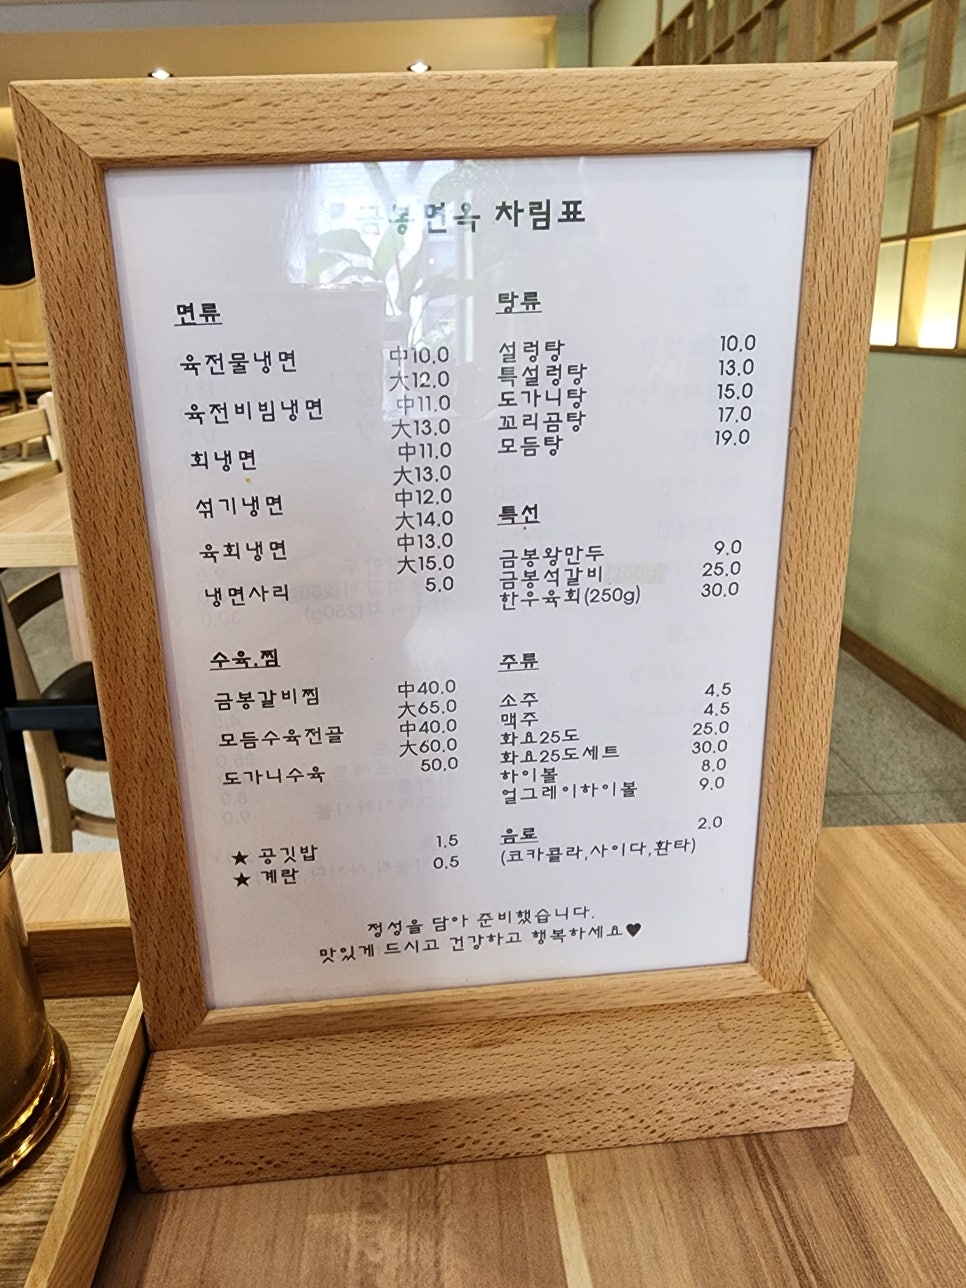 금봉면옥 차림표
면류
육전물냉면 中10.0
大12.0
육전비빔냉면 中11.0
大13.0
회냉면 中11.0
大13.0
섞기냉면 中12.0
大14.0
육회냉면 中13.0
大15.0
냉면사리 5.0
수육,찜
금봉갈비찜 中40.0
大65.0
모듬수육전골 中40.0
大60.0
도가니수육 50.0
★ 공깃밥 1.5
★ 계란 0.5
탕류
설렁탕 10.0
특설렁탕 13.0
도가니탕 15.0
꼬리곰탕 17.0
모듬탕 19.0
특선
금봉왕만두 9.0
금봉석갈비 25.0
한우육회(250g) 30.0
주류
소주 4.5
맥주 4.5
화요25도 25.0
화요25도세트 30.0
하이볼 8.0
얼그레이하이볼 9.0
음료 2.0
(코카콜라,사이다,환타)
정성을 담아 준비했습니다.
맛있게 드시고 건강하고 행복하세요♥